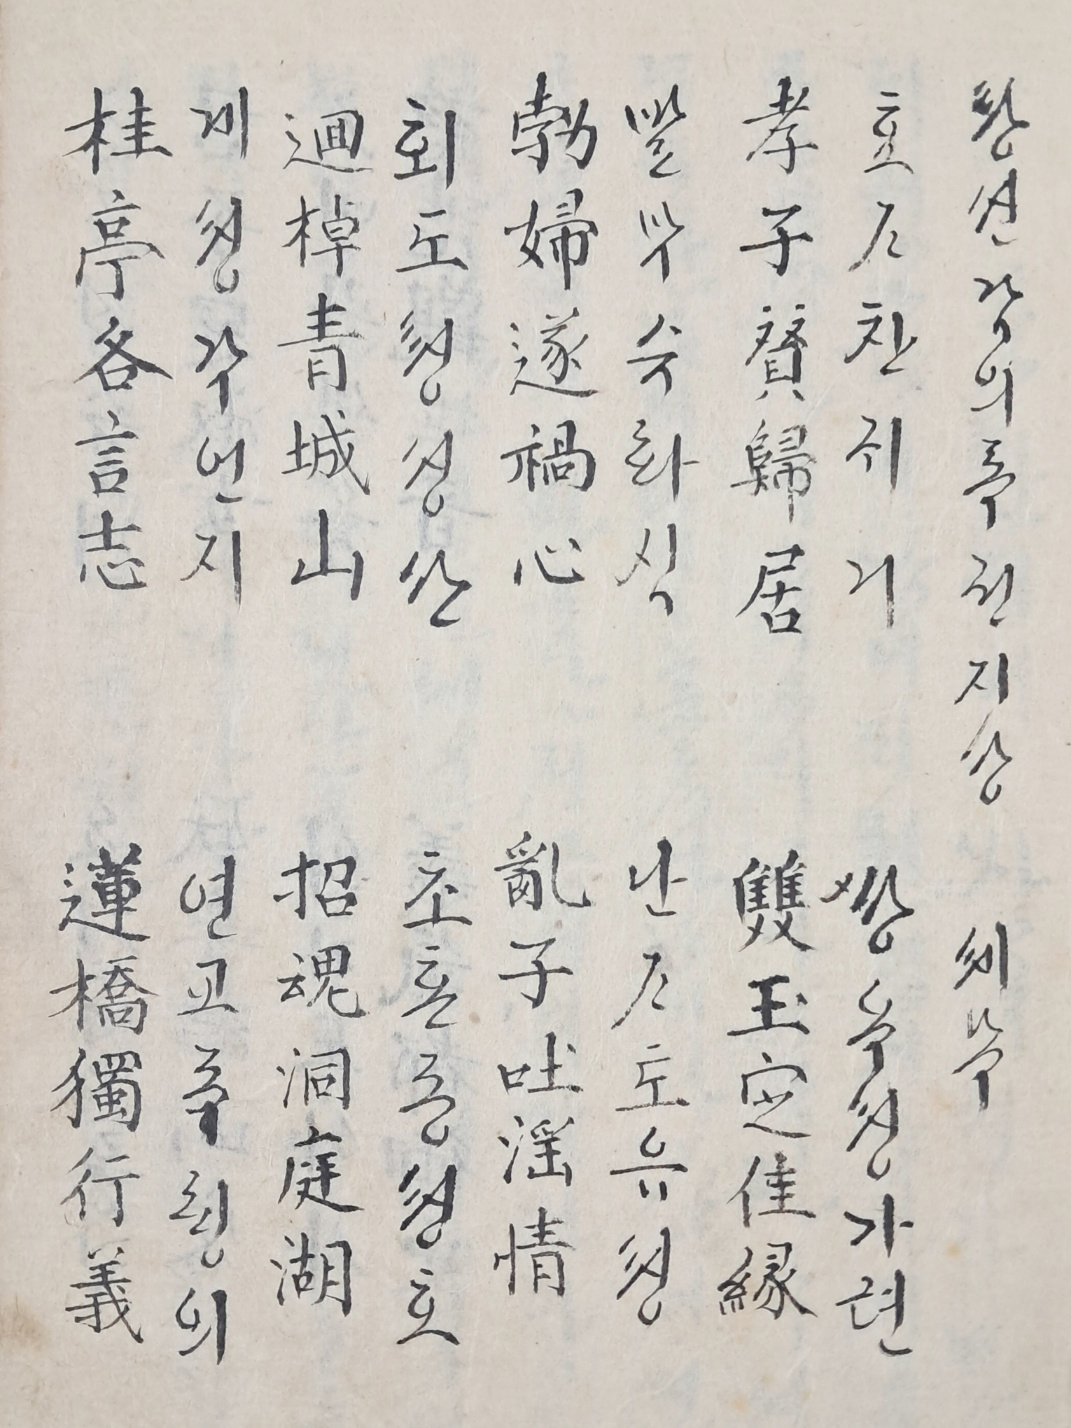 챵션감의록권지상
효ᄌᆞ찬귀거 쌍옥졍가연
孝子贊歸居 雙玉定佳緣
발부수화심 난ᄌᆞ토음졍
勃婦遂禍心 亂子吐滛情
회도쳥셩산 초혼동졍호
逥棹青城山 招魂洞庭湖
계졍각언지 연교독ᄒᆡᆼ의
桂亭各言志 蓮橋獨行義